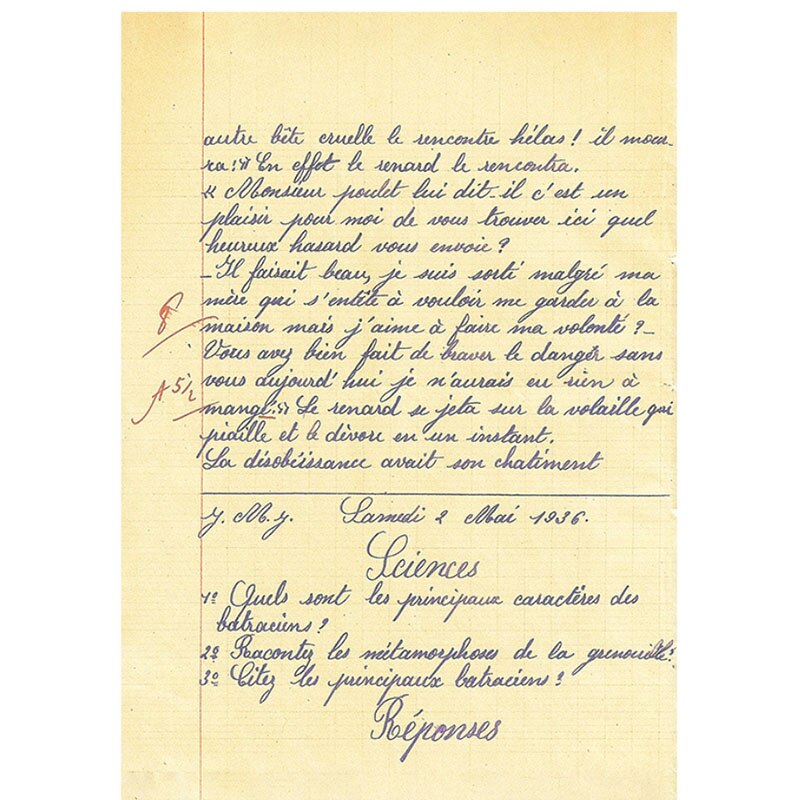 autre bête cruelle le rencontre hélas! il mour-
ra!» En effet le renard le rencontra.
« Monsieur poulet lui dit-il c'est un
plaisir pour moi de vous trouver ici quel
heureux hasard vous envoie?
-Il faisait beau, je suis sorti malgré ma
mère qui s'entête à vouloir me garder à la
maison mais j'aime à faire ma volonté?-
Vous avez bien fait de braver le danger sans
vous aujourd'hui je n'aurais eu rien à
mangé.» Le renard se jeta sur la volaille qui
piaille et le dévore en un instant.
La désobéissance avait son chatiment
8
A 5½
J. M. J. Samedi 2 Mai 1936.
Sciences
1º Quels sont les principaux caractères des
batraciens?
2º Racontez les métamorphoses de la grenouille?
3º Citez les principaux batraciens?
Réponses